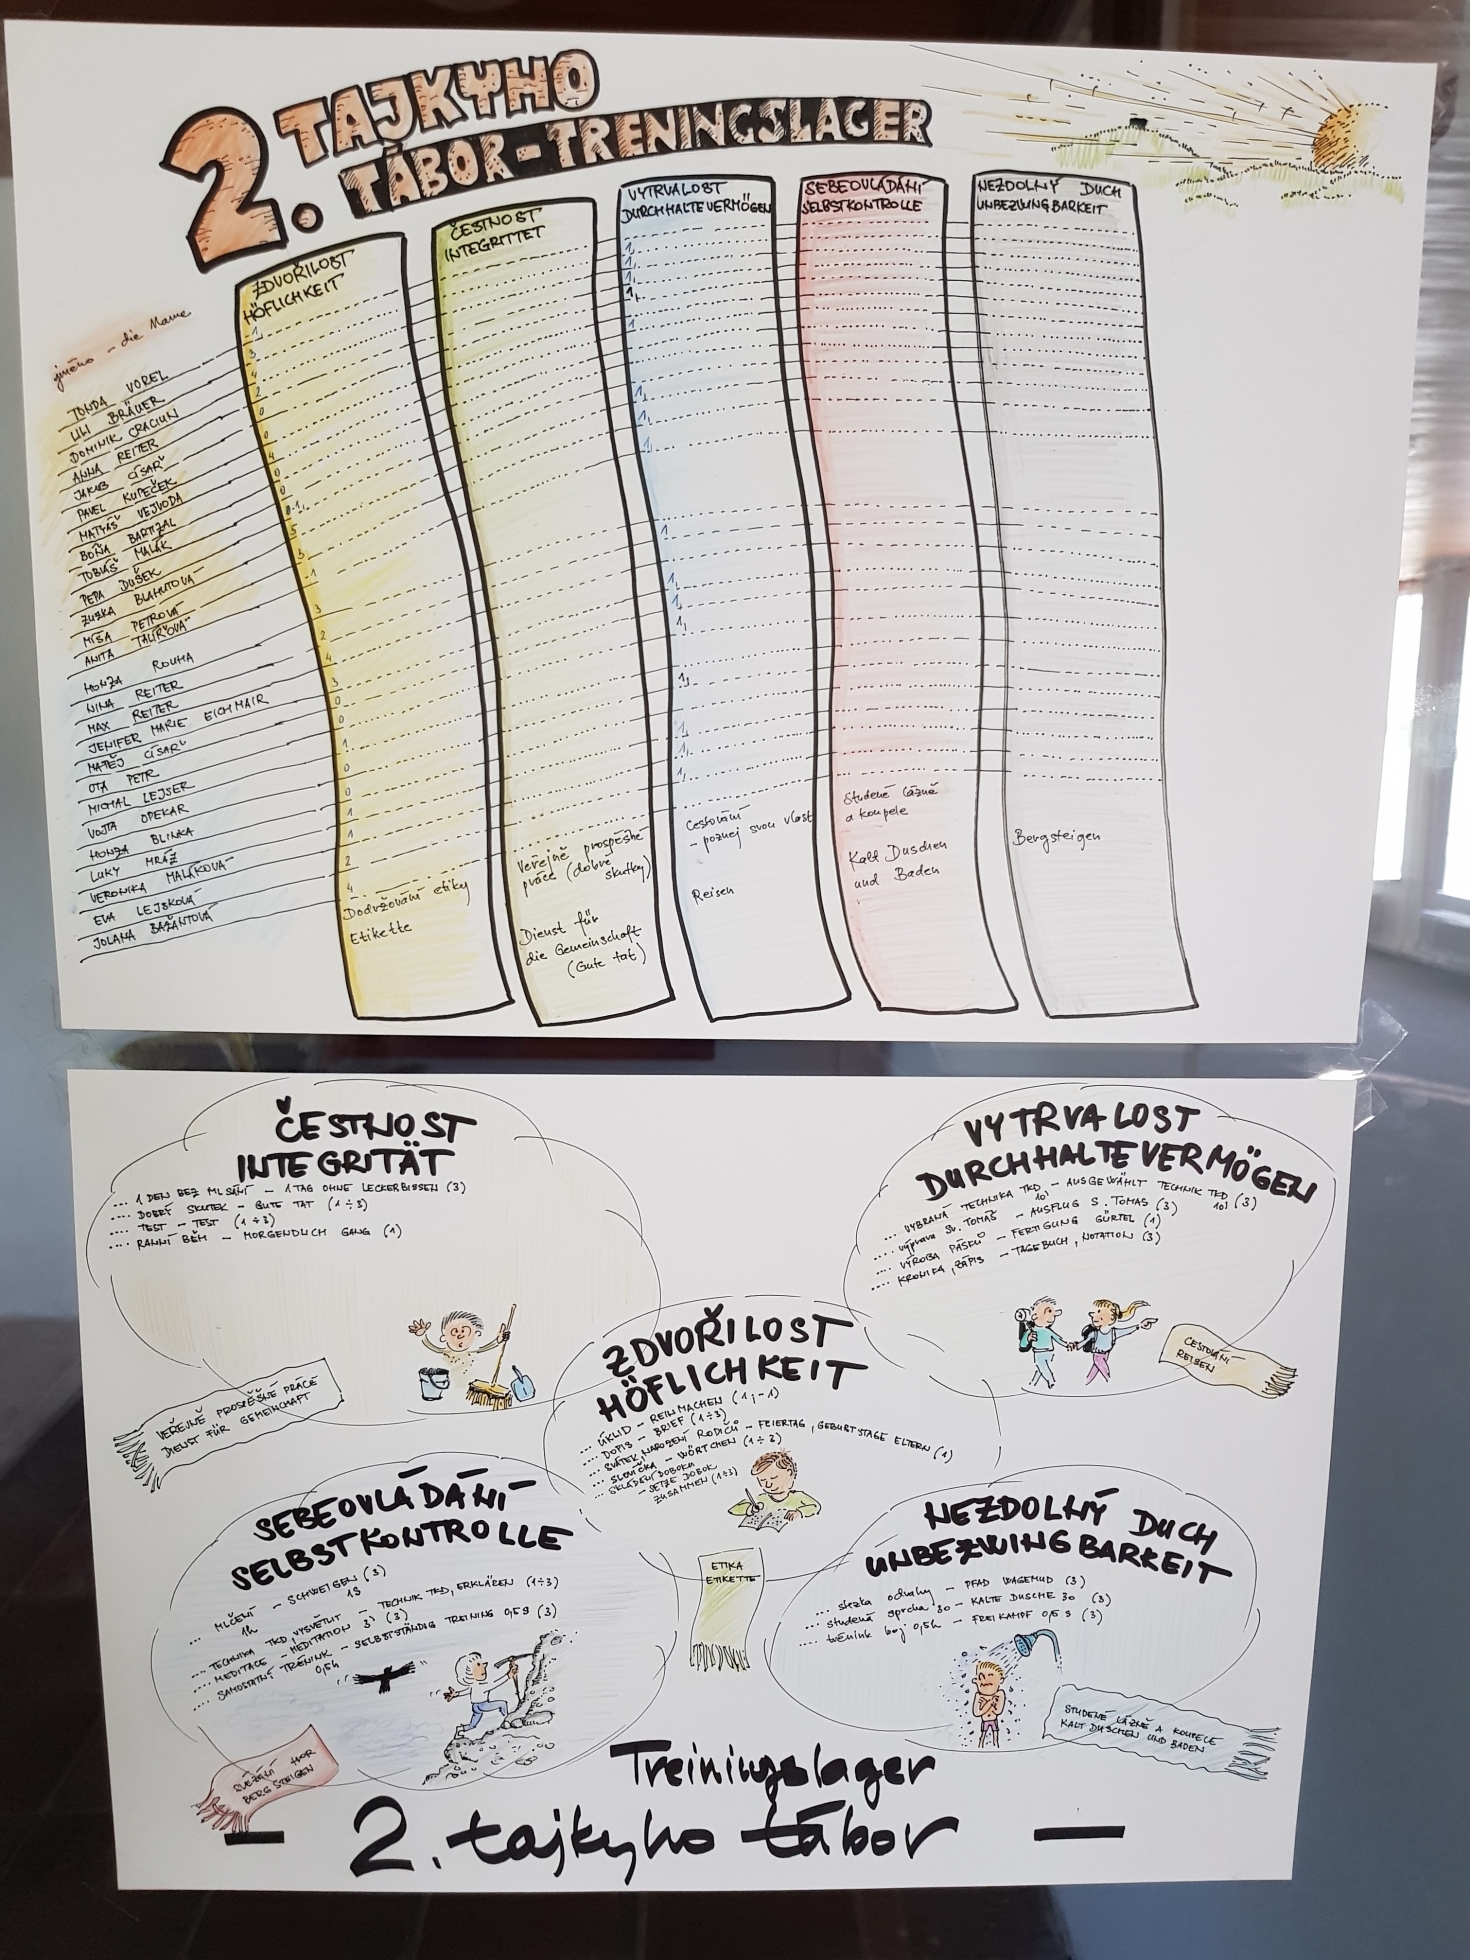 2. TAJKYHO
TÁBOR-TRENINGSLAGER
jméno - die Name
ZDVOŘILOST
HÖFLICHKEIT
ČESTNOST
INTEGRITTET
VYTRVALOST
DURCHHALTEVERMÖGEN
SEBEOVLÁDÁNÍ
SELBSTKONTROLLE
NEZDOLNÝ DUCH
UNBEZWINGBARKEIT
TONDA VOREL
LILI BRÄUER
DOMINIK CRACIUN
ANNA REITER
JAKUB CÍSAŘ
PAVEL KUPEČEK
MATYÁŠ VEJVODA
BOŇA BARTIZAL
TOBIÁŠ MALÁK
PEPA DUŠEK
ZUZKA BLAHUTOVÁ
MÍŠA PETROVÁ
ANITA TALÍŘOVÁ
HONZA ROUHA
NINA REITER
MAX REITER
JENIFER MARIE EICHMAIR
MATĚJ CÍSAŘ
OTA PETR
MICHAL LEJSER
VOJTA OPEKAR
HONZA BLINKA
LUKY MRÁZ
VERONIKA MALÁKOVÁ
EVA LEJSKOVÁ
JOLANA BAŽANTOVÁ
Dodržování etiky
Etikette
Veřejně prospěšné
práce (dobré
skutky)
Dienst für
die Gemeinschaft
(Gute tat)
Cestování
- poznej svou vlast
Reisen
Studené lázně
a koupele
Kalt Duschen
und Baden
Bergsteigen
ČESTNOST
INTEGRITÄT
.... 1 DEN BEZ MLSÁNÍ - 1 TAG OHNE LECKERBISSEN (3)
.... DOBRÝ SKUTEK - GUTE TAT (1÷3)
.... TEST - TEST (1÷3)
.... RANNÍ BĚH - MORGENDLICH GANG (1)
VEŘEJNĚ PROSPĚŠNÉ PRÁCE
DIENST FÜR GEMEINCHAFT
VYTRVALOST
DURCHHALTEVERMÖGEN
.... VYBRANÁ TECHNIKA TKD 10! - AUSGEWÄHLT TECHNIK TKD 10! (3)
.... výprava SV. TOMÁŠ - AUSFLUG S. TOMAS (3)
.... VÝROBA PÁSKŮ - FERTIGUNG GÜRTEL (1)
.... KRONIKA, ZÁPIS - TAGEBUCH, NOTATION (3)
CESTOVÁNÍ
REISEN
ZDVOŘILOST
HÖFLICHKEIT
... ÚKLID - REINMACHEN (1,-1)
... DOPIS - BRIEF (1÷3)
... SVÁTEK, NAROZENÍ RODIČŮ - FEIERTAG, GEBURTSTAGE ELTERN (1)
... SLOVÍČKA - WÖRTCHEN (1÷3)
... SKLÁDÁNÍ DOBOKU
- SETZE DOBOK
ZUSAMMEN (1÷3)
ETIKA
ETIKETTE
SEBEOVLÁDÁNÍ
SELBSTKONTROLLE
... MLČENÍ - SCHWEIGEN (3)
1h 1S
.... TECHNIKA TKD, VYSVĚTLIT - TECHNIK TKD, ERKLÄREN (1÷3)
.... MEDITACE - MEDITATION 3' (3)
.... SAMOSTATNÍ TRÉNINK - SELBSTSTÄNDIG TREINING 0,5 S (3)
0,5h
SLÉZÁNÍ HOR
BERGSTEIGEN
NEZDOLNÝ DUCH
UNBEZWINGBARKEIT
... stezka odvahy - PFAD WAGEMUD (3)
.... studená sprcha 30 - KALTE DUSCHE 30 (3)
.... trénink boj 0,5h - FREIKAMPF 0,5 S (3)
STUDENÉ LÁZNĚ A KOUPELE
KALT DUSCHEN UND BADEN
Treiningslager
- 2. tajkyho tábor -